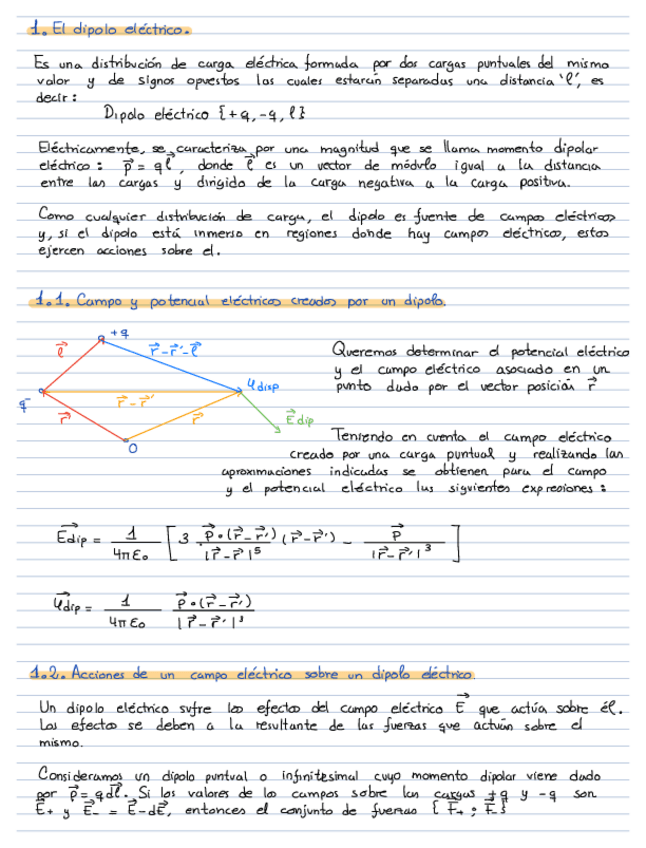 1. El dipolo eléctrico.
Es una distribución de carga eléctrica formada por dos cargas puntuales del mismo
valor y de signos opuestos las cuales estarán separadas una distancia 'l', es
decir:
Dipolo eléctrico {+q, -q, l}
Eléctricamente, se caracteriza por una magnitud que se llama momento dipolar
eléctrico: p⃗ = q l⃗, donde l⃗ es un vector de módulo igual a la distancia
entre las cargas y dirigido de la carga negativa a la carga positiva.
Como cualquier distribución de carga, el dipolo es fuente de campos eléctricos
y, si el dipolo está inmerso en regiones donde hay campos eléctricos, estos
ejercen acciones sobre el.
1.1. Campo y potencial eléctricos creados por un dipolo.
+q
l⃗
r⃗-r⃗'-l⃗
Queremos determinar el potencial eléctrico
y el campo eléctrico asociado en un
φdisp
punto dado por el vector posición r⃗
q-
r⃗-r⃗'
r⃗'
r⃗
E⃗dip
O
Teniendo en cuenta el campo eléctrico
creado por una carga puntual y realizando las
aproximaciones indicadas se obtienen para el campo
y el potencial eléctrico las siguientes expresiones:
E⃗dip = 1/4πε₀ [3 p⃗•(r⃗-r⃗')/|r⃗-r⃗'|⁵ (r⃗-r⃗') - p⃗/|r⃗-r⃗'|³]
φ⃗dip = 1/4πε₀ p⃗•(r⃗-r⃗')/|r⃗-r⃗'|³
1.2. Acciones de un campo eléctrico sobre un dipolo eléctrico.
Un dipolo eléctrico sufre los efectos del campo eléctrico E⃗ que actúa sobre él.
Los efectos se deben a la resultante de las fuerzas que actúan sobre el
mismo.
Consideramos un dipolo puntual o infinitesimal cuyo momento dipolar viene dado
por p⃗ = q dl⃗. Si los valores de los campos sobre las cargas +q y -q son
E⃗+ y E⃗- = E⃗-dE⃗, entonces el conjunto de fuerzas {F⃗+ ; F⃗-}